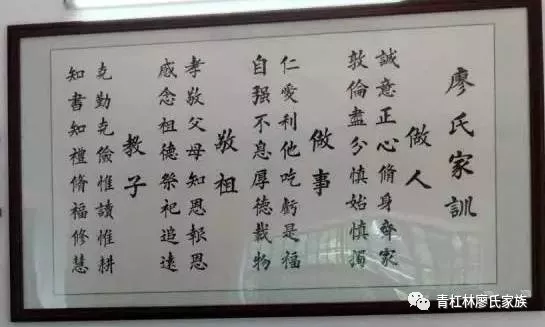 廖氏家訓
做人
誠意正心脩身齊家
敦倫盡分慎始慎濁
做事
仁愛利他吃虧是福
自强不息厚德载物
敬祖
孝敬父母知恩報恩
感念祖德祭祀追遠
教子
克勤克儉惟讀惟耕
知書知禮脩福修慧
青杠林廖氏家族